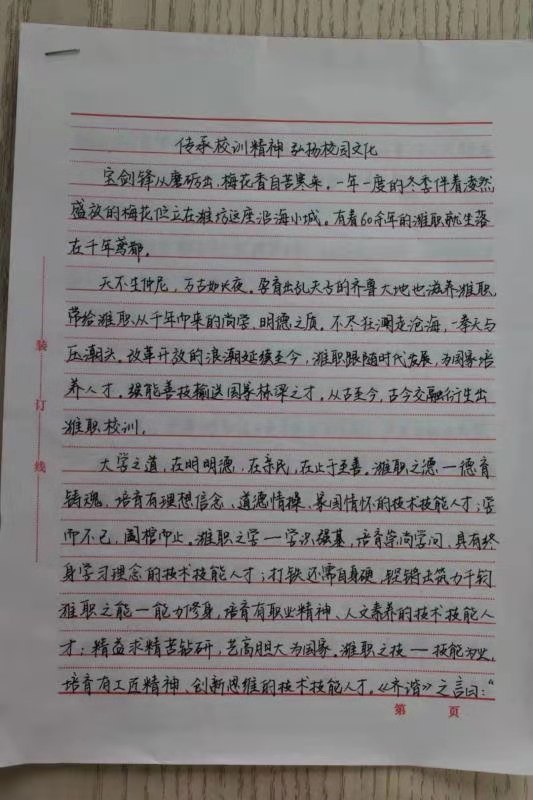 传承校训精神 弘扬校园文化
宝剑锋从磨砺出，梅花香自苦寒来。一年一度的冬季伴着凌然
盛放的梅花伫立在潍坊这座沿海小城。有着60余年的潍职就坐落
在千年鸢都。
天不生仲尼，万古如长夜。孕育出孔夫子的齐鲁大地也滋养潍职，
带给潍职从千年中来的尚学、明德之质。不尽狂澜走沧海，一拳天与
压潮头。改革开放的浪潮延续至今，潍职跟随时代发展，为国家培
养人才。强能善技输送国家栋梁之才。从古至今，古今交融衍生出
潍职校训。
大学之道，在明明德，在亲民，在止于至善。潍职之德一德育
铸魂，培育有理想信念、道德情操、家国情怀的技术技能人才；学
而不已，阖棺而止。潍职之学一学识强基，培育崇尚学问、具有终
身学习理念的技术技能人才；打铁还需自身硬，铿锵出筑力千钧
潍职之能一能力修身，培育有职业精神、人文素养的技术技能人
才；精益求精苦钻研，艺高胆大为国家。潍职之技一技能为业，
培育有工匠精神、创新思维的技术技能人才。《齐谐》之言曰：“
装
订
线
第 页